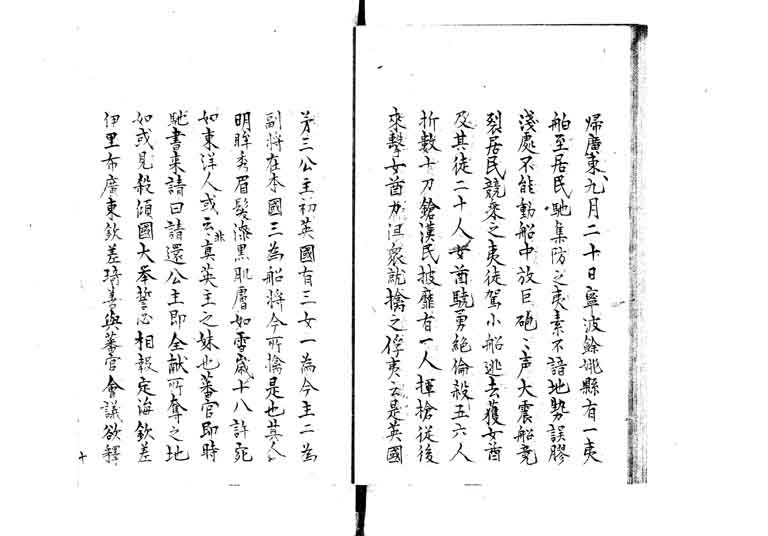 帰廣東、九月二十日寧波餘姚縣有一夷
舶至居民馳集防之夷素不諳地勢誤膠
淺處不能動船中放巨砲〻声大震船竟
裂居民競乘之夷徒駕小船逃去獲女酋
及其徒二十人女酋驍勇絶倫殺五六人
折數十刀鎗漢民披靡有一人揮槍従後
來擊女酋力沮衆就擒之俘夷云是英國
第三公主初英國有三女一為今主二為
副將在本國三為船將今所擒是也其人
明眸秀眉髮漆黒肌膚如雪歳十八許宛
如東洋人或云非真英主之妹也蕃官即時
馳書来請曰請還公主即全献所奪之地
如或見殺傾國大挙誓必相報定海欽差
伊里布廣東欽差琦善與蕃官會議欲釋
十